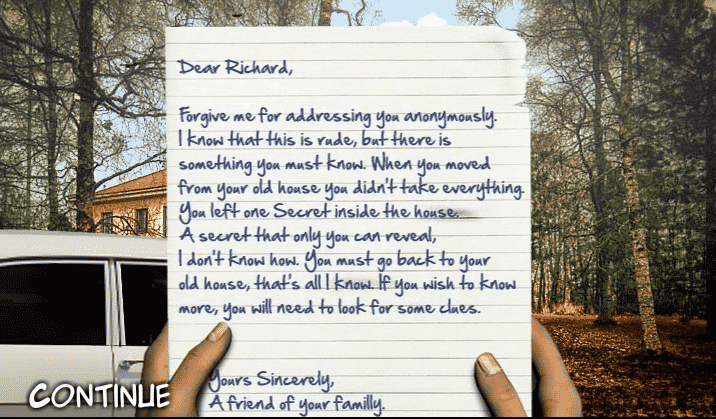 Dear Richard,
Forgive me for addressing you anonymously.
I know that this is rude, but there is
something you must know. When you moved
from your old house you didn't take everything.
You left one Secret inside the house.
A secret that only you can reveal,
I don't know how. You must go back to your
old house, that's all I know. If you wish to know
more, you will need to look for some clues.
Yours Sincerely,
A friend of your familly.
CONTINUE